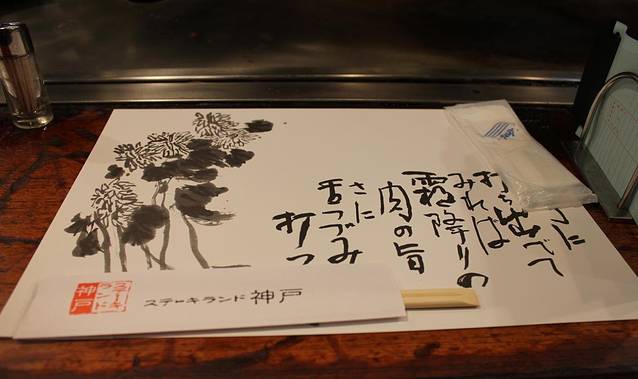 に
打ち出でて
みれば
霜降りの
肉の旨
さに
舌つづみ
打つ
ステーキ
ランド
神戸
ステーキランド 神戸